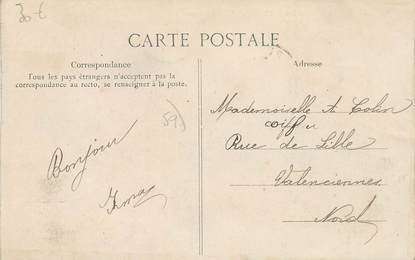 30 €
CARTE POSTALE
Correspondance
Tous les pays étrangers n'acceptent pas la
correspondance au recto, se renseigner à la poste.
Bonjour
Irma
59)
Adresse
Mademoiselle A Colin
coiff
Rue de Lille
Valenciennes
Nord